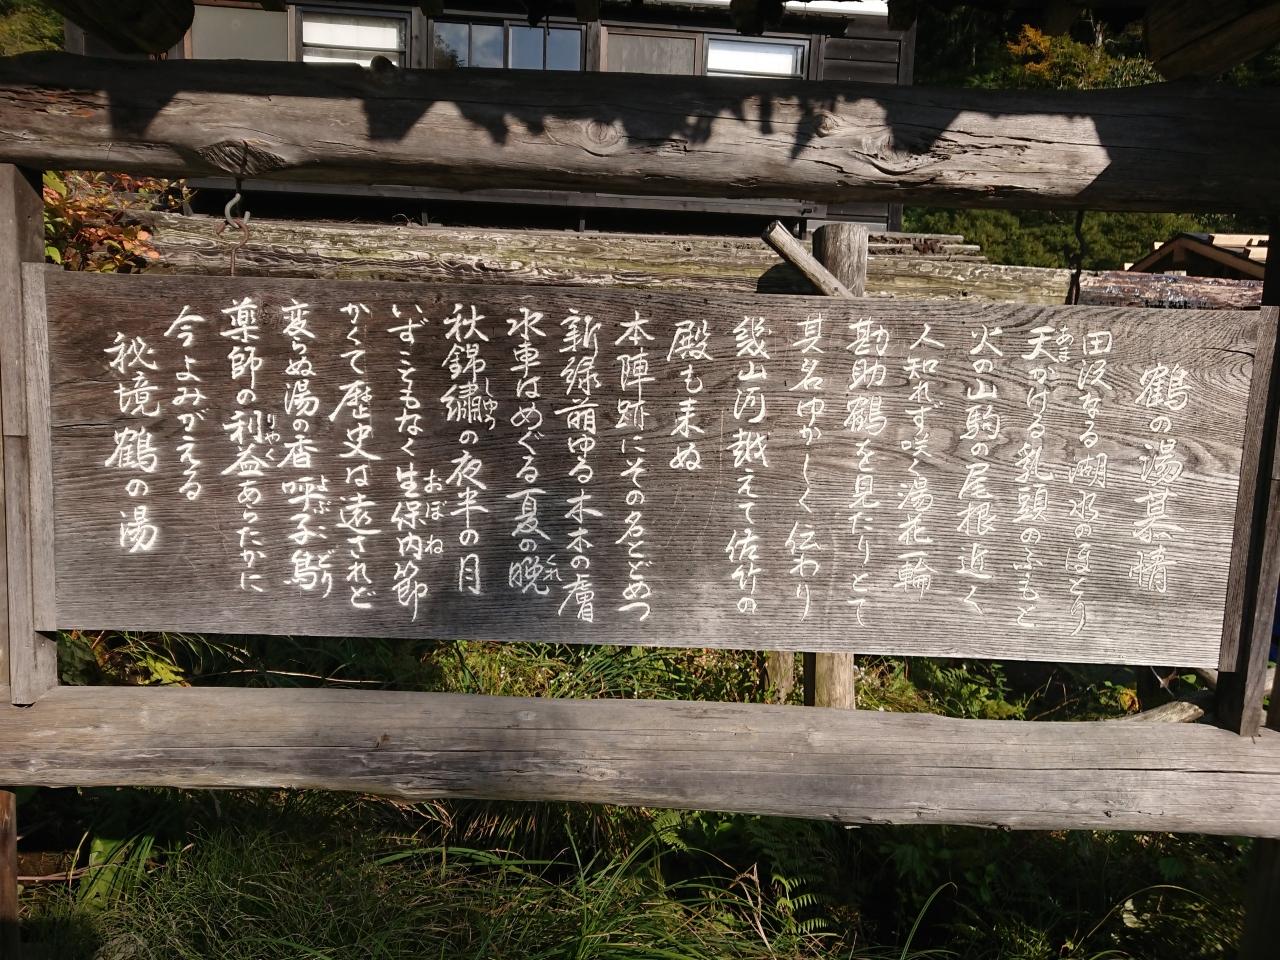 鶴の湯慕情
田沢なる湖水のほとり
天がける乳頭のふもと
あま
火の山駒の尾根近く
人知れず咲く湯花一輪
勘助鶴を見たりとて
其名ゆかしく伝わり
幾山河越えて佐竹の
殿も来ぬ
本陣跡にその名とどめつ
新緑萌ゆる木木の膚
水車はめぐる夏の晩
くれ
秋錦繡の夜半の月
しゅう
いずこともなく生保内節
おぼね
かくて歴史は遠されど
変らぬ湯の香呼子鳥
よぶこどり
薬師の利益あらたかに
りやく
今よみがえる
秘境鶴の湯